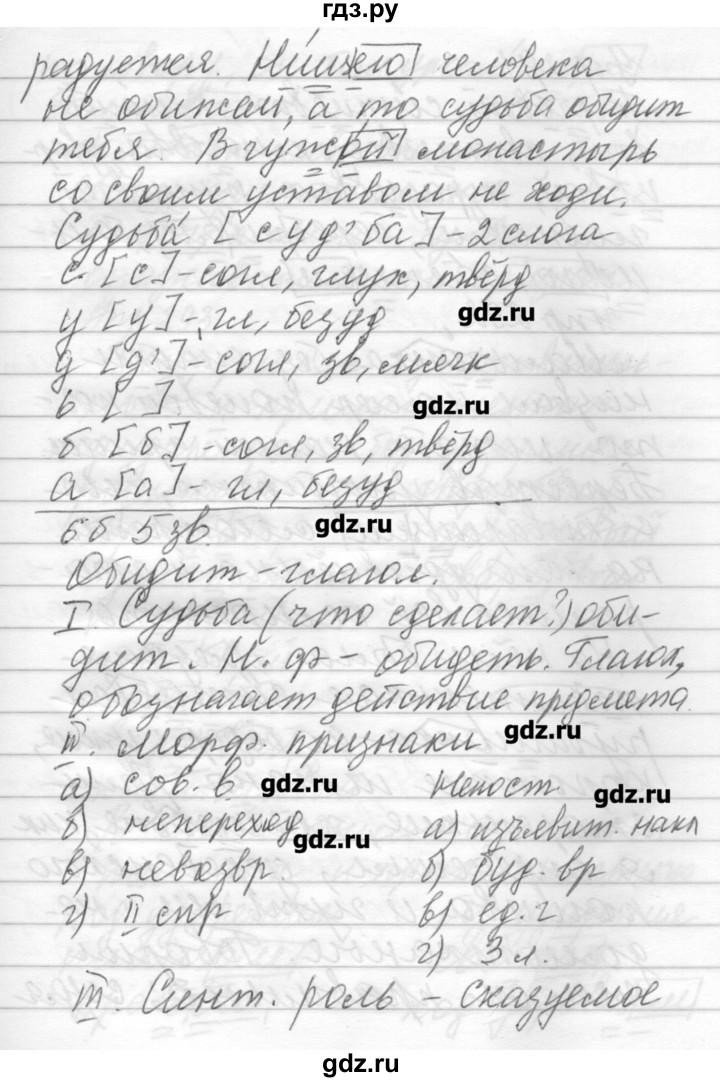 гдз.ру
радуется. Нищего человека
не обижай, а то судьба обидит
тебя. В чужой монастырь
со своим уставом не ходи.
Судьба́ [суд'ба] - 2 слога
с [с] - согл, глух, твёрд
у [у] - гл, безуд
gdz.ru
д [д'] - согл, зв, мягк
ь [ ]
gdz.ru
б [б] - согл, зв, твёрд
а [а] - гл, безуд
6 б 5 зв.
gdz.ru
Обидит - глагол.
I Судьба (что сделает?) оби-
дит. Н. ф - обидеть. Глагол,
обозначает действие предмета.
II. Морф. признаки
gdz.ru
а) сов. в. Непост
gdz.ru
gdz.ru
б) непереход а) изъявит. накл
gdz.ru
в) невозвр. б) буд. вр
г) II спр в) ед. ч
г) 3 л.
III. Синт. роль - сказуемое
gdz.ru